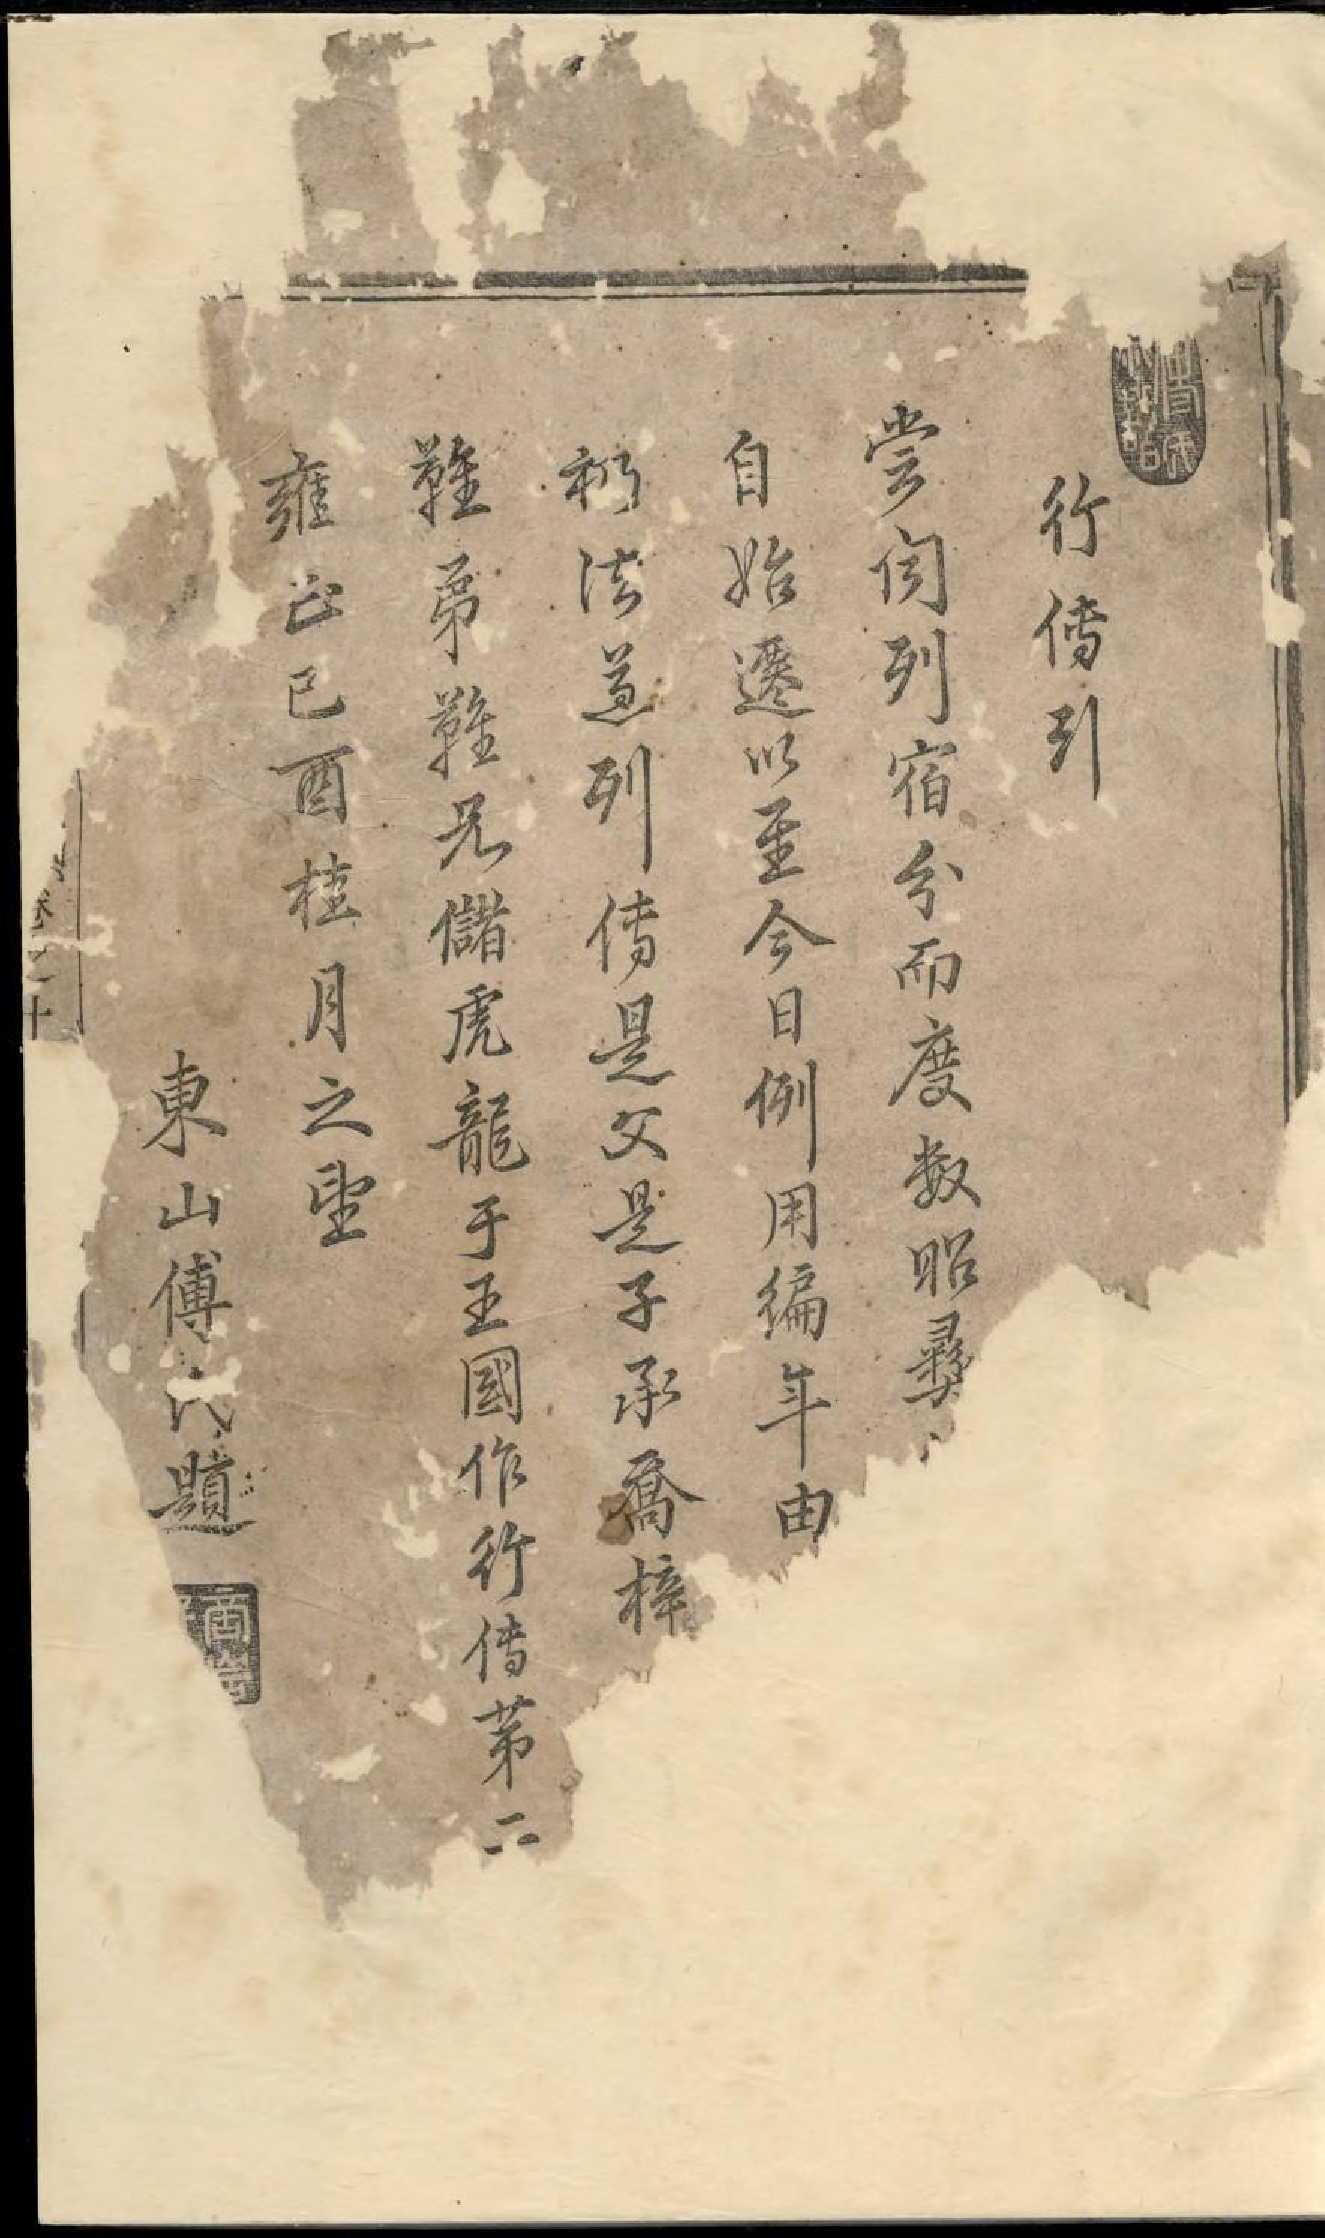 行傳引
嘗闻列宿分而度数昭彝
自始遷以至今日例用編年由
初法道列傳是父是子承喬梓
難弟難兄儲虎龍于王國作行傳第二
雍正己酉桂月之望
東山傅氏題
卷之十